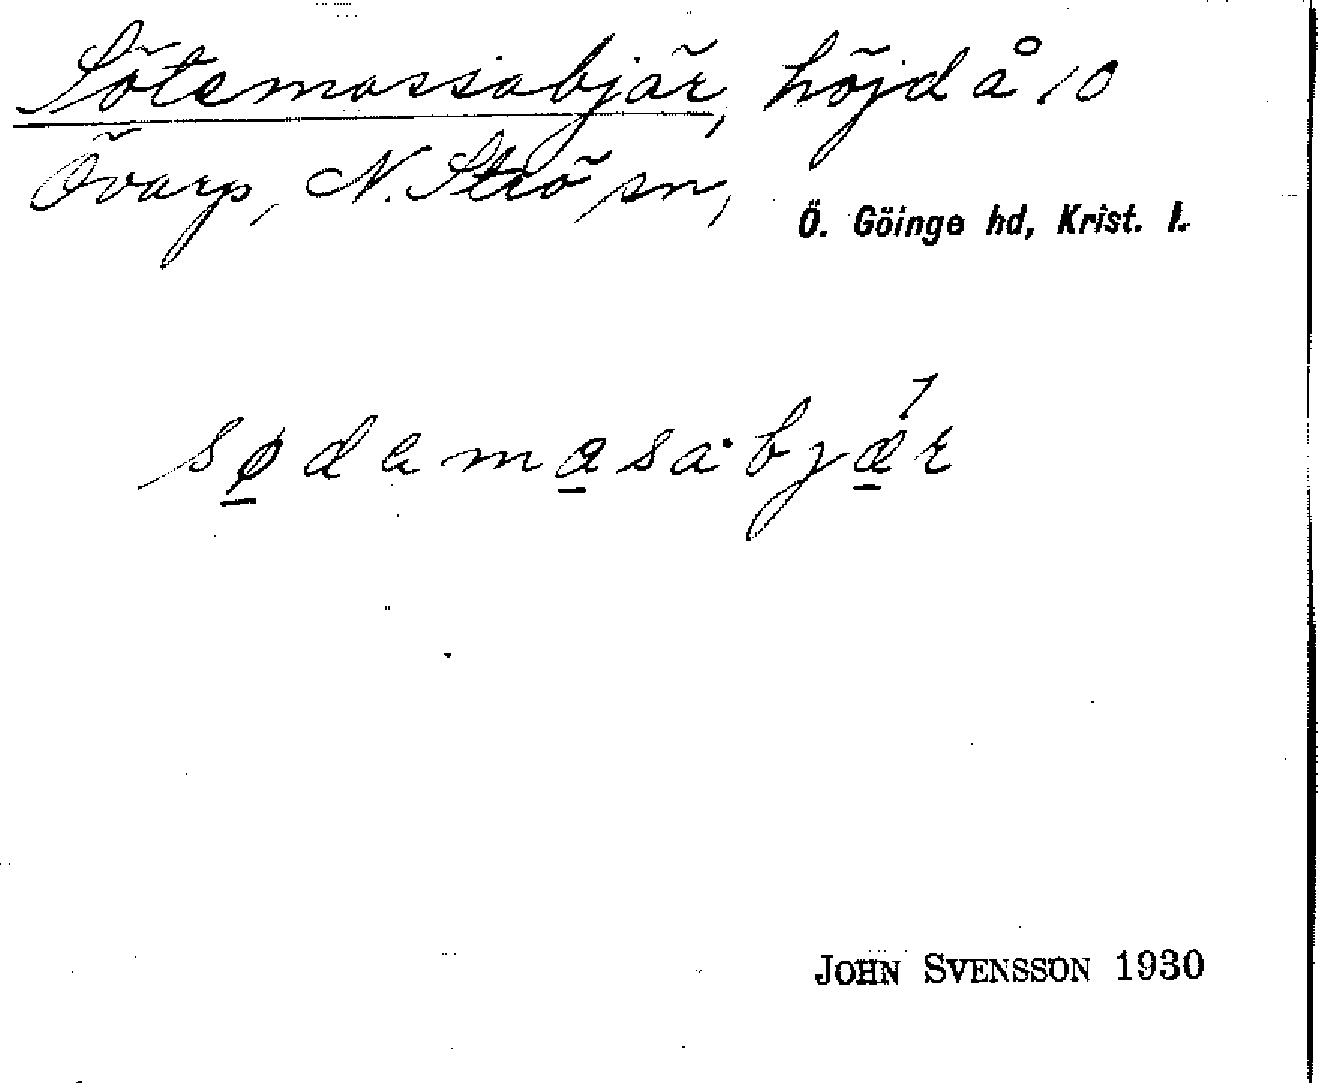 Sötemossabjär, höjd å 10
Övarp, N. Strö sn, Ö. Göinge hd, Krist. l.
sø̱damo̱sa·bjæ̱r
JOHN SVENSSON 1930